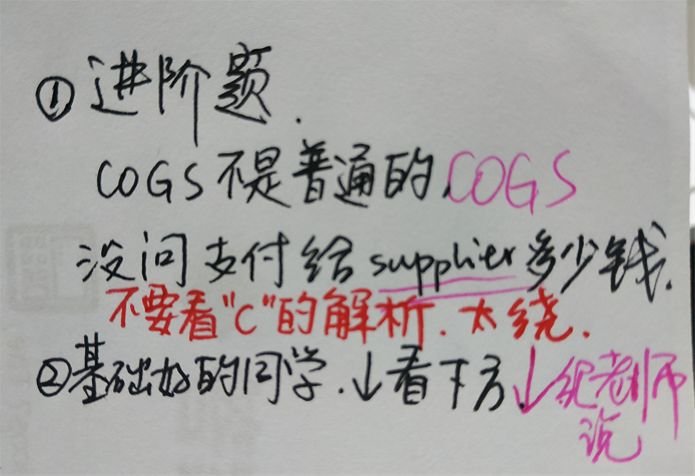 ①进阶题.
COGS不是普通的COGS
没问支付给supplier多少钱.
不要看"C"的解析.太绕.
②基础好的同学.↓看下方↓纪老师
说